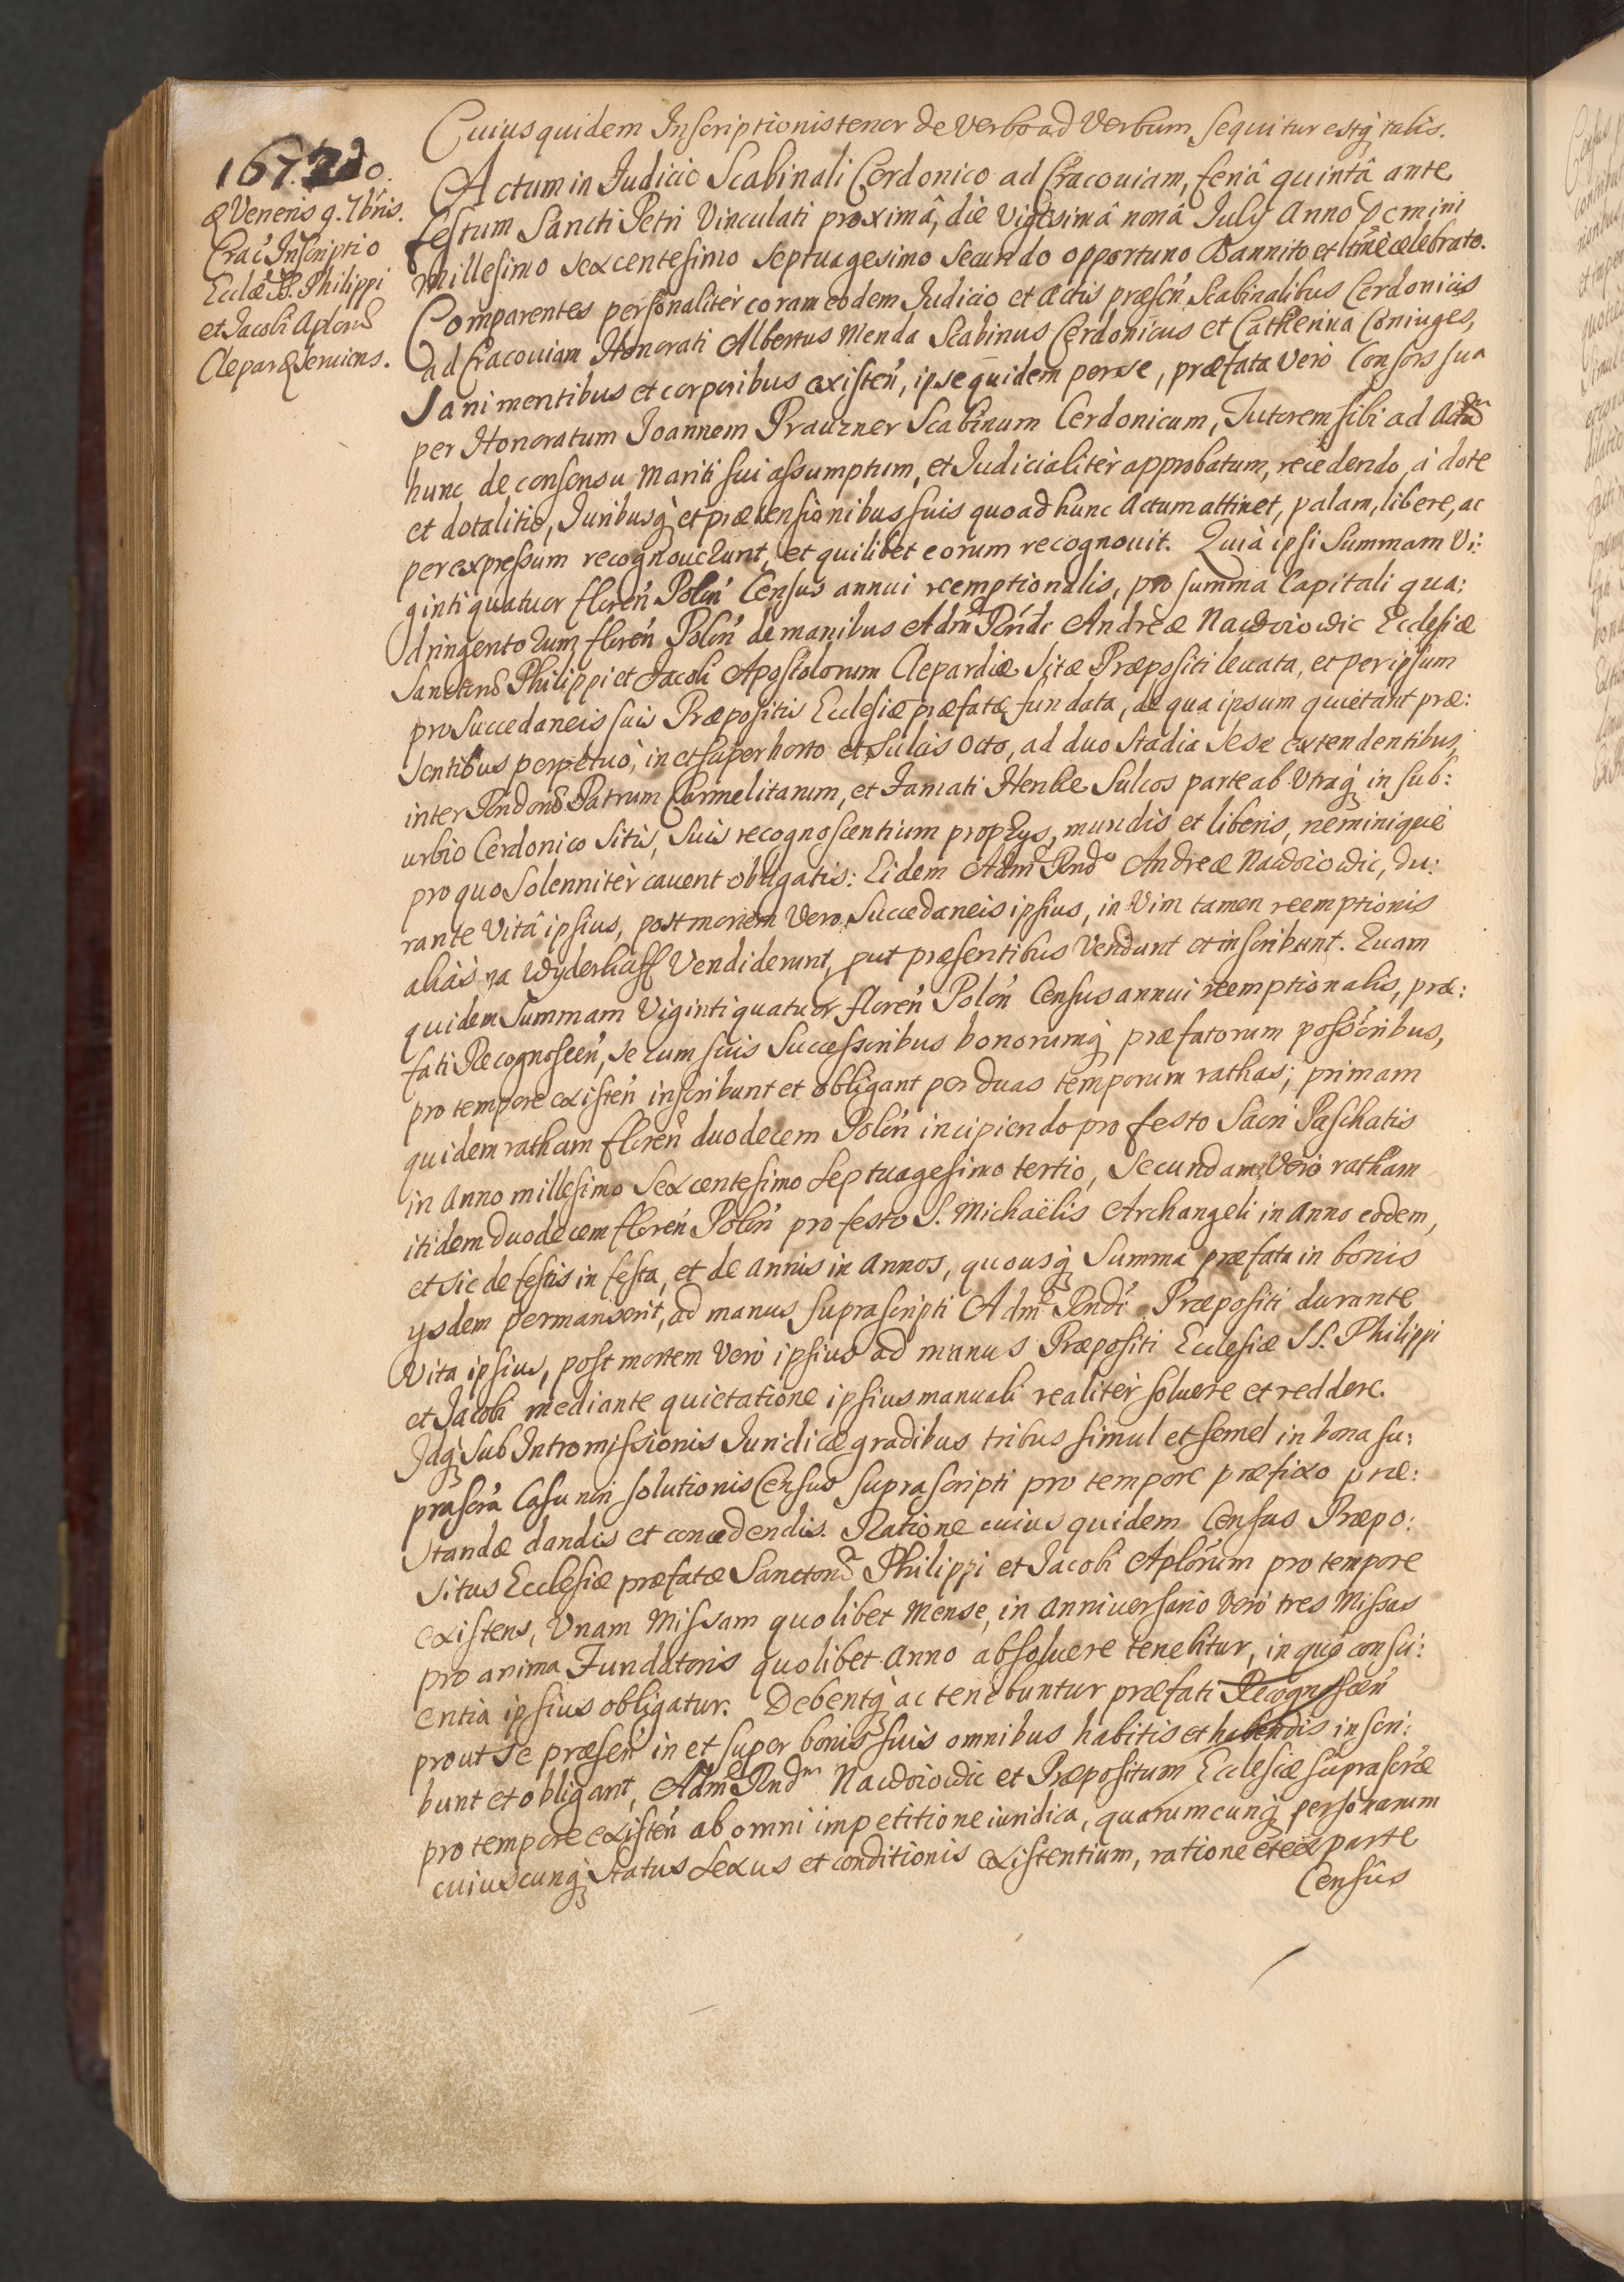 1672do.
& Veneris 9. 7bris.
Crac. Inscriptio
Ecclæ SS. Philippi
et Jacobi Aplorũ
Clepar. Serviens.
Cuius quidem Inscriptionis tenor de verbo ad verbum sequitur estq talis.
Actum in Judicio Scabinali Cerdonico ad Cracouiam, feriâ quintâ ante
festum Sancti Petri Vinculati proximâ, die Vigesimâ nonâ July Anno Domini
Millesimo Sexcentesimo Septuagesimo Secundo opportuno Bannito et ltimè celebrato.
Comparentes personalitèr coram eodem Judicio et Actis præsen̄ Scabinalibus Cerdonicis
ad Cracouiam Honorati Albertus Menda Scabinus Cerdonicus et Catherina Coniuges,
Sani mentibus et corporibus existen̄, ipse quidem per se, præfata Verò Consors sua
per Honoratum Joannem Prauzner Scabinum Cerdonicum, Tutorem sibi ad Actũ
hunc de consensu Mariti sui assumptum, et Judicialitèr approbatum, recedendo à dote
et dotalitio, Juribusq et prætensionibus suis quo ad hunc Actum attinet, palam, libere, ac
per expressum recognouerunt, et quilibet eorum recognouit. Quià ipsi Summam Vi:
ginti quatuor floren̄ Polon̄ Census annui reemptionalis, pro summa Capitali qua:
dringentorum floren̄ Polon̄ de manibus Adm̄ Rndi Andreæ Nawoiowic Ecclesiæ
Sanctorũ Philippi et Jacobi Apostolorum Clepardiæ Sitæ Præpositi leuata, et per ipsum
pro Succedaneis suis Præpositis Ecclesiæ præfatæ fundata, de qua ipsum quietant præ:
sentibus perpetuò, in et super horto et Sulcis Octo, ad duo Stadia Sese extendentibus,
inter Rndorũ Patrum Carmelitarum, et Famati Henke Sulcos parte ab Utraq in sub:
urbio Cerdonico Sitis, Suis recognoscentium proprys, mundis et liberis, neminiquè
pro quo Solennitèr cauent obligatis: Eidem Adm̄ Rndo Andreæ Nawoiowic, du:
rante Vitâ ipsius, post mortem Vero Succedaneis ipsius, in Vim tamen reemptionis
aliàs na Wyderkaff Vendiderunt, put præsentibus Vendunt et inscribunt. Quam
quidem Summam Viginti quatuor floren̄ Polon̄ Census annui reemptionalis, præ:
fati Recognoscen̄, se cum suis Successoribus bonorumq præfatorum possoribus,
pro tempore existen̄ inscribunt et obligant per duas temporum rathas; primam
quidem ratham floren̄ duodecem Polon̄ incipiendo pro festo Sacri Paschatis
in Anno millesimo Sexcentesimo Septuagesimo tertio, Secundam Verò ratham
itidem duodecem floren̄ Polon̄ pro festo S. Michaëlis Archangeli in Anno eodem,
et sic de festis in festa, et de Annis in Annos, quousq Summa præfata in bonis
ysdem permanserit, ad manus suprascripti Adm̄ Rndi Præpositi durante
Vita ipsius, post mortem Verò ipsius ad manus Præpositi Ecclesiæ SS. Philippi
et Jacobi mediante quietatione ipsius manuali realitèr soluere et reddere.
Idq Sub Intromissionis Juridicæ gradibus tribus simul et semel in bona su:
prascra Casu non solutionis Census suprascripti pro tempore præfixo præ:
standæ dandis et concedendis. Ratione cuius quidem Census Præpo:
situs Ecclesiæ præfatæ Sanctorũ Philippi et Jacobi Aplorum pro tempore
existens, Unam Missam quolibet Mense, in Anniuersario Verò tres Missas
pro anima Fundatoris quolibet Anno absoluere tenebitur, in quo consci:
entia ipsius obligatur. Debentq ac tenebuntur præfati Recognoscen̄
prout se præsen̄ in et super bonis suis omnibus habitis et habendis inscri:
bunt et obligant, Adm̄ Rndm Nawoiowic et Præpositum Ecclesiæ suprascræ
pro tempore existen̄ ab omni impetitione iuridica, quarumcunq personarum
cuiuscunq Status Sexus et conditionis existentium, ratione et ex parte
Censûs